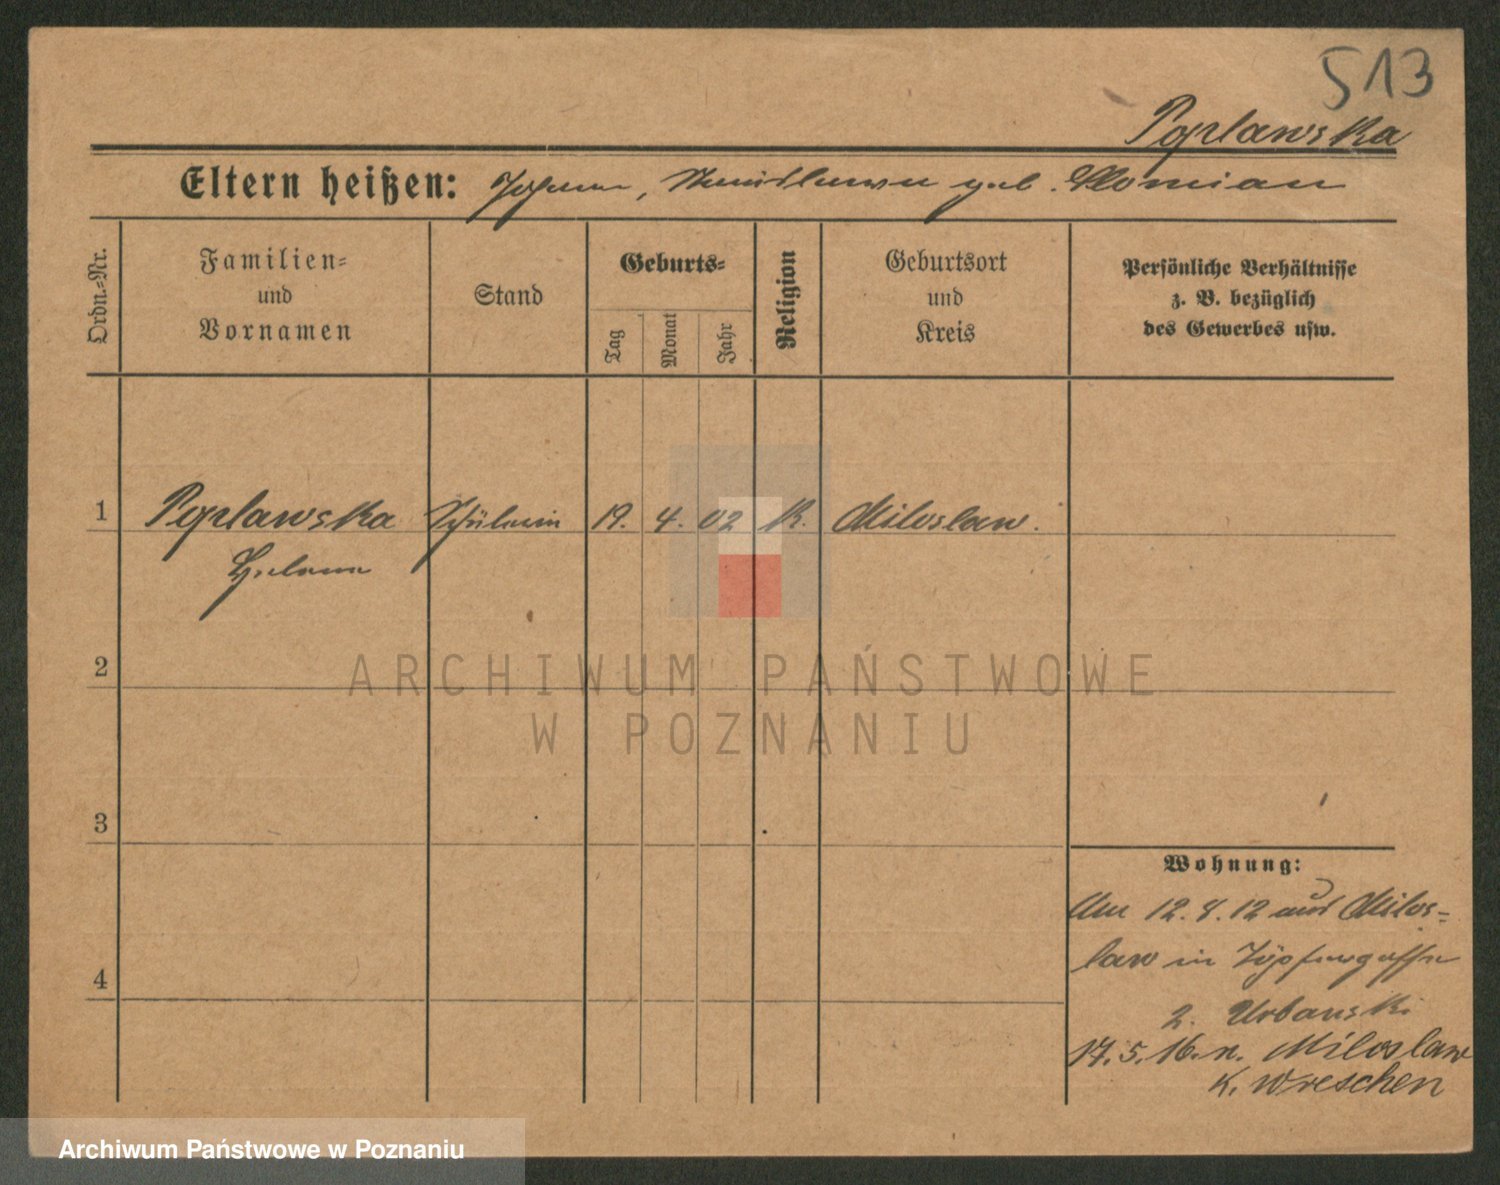 513
Poplawska
Eltern heißen: Johann, Stanislawa geb. Slomian
Ordn.=Nr.
Familien=
und
Vornamen
Stand
Geburts=
Tag
Monat
Jahr
Religion
Geburtsort
und
Kreis
Persönliche Verhältnisse
z. B. bezüglich
des Gewerbes usw.
1 Poplawska Schülerin 19. 4. 02 K. Miloslaw.
Helena
2
3
4
Wohnung:
12. 4. 12 aus Milos=
law in Töpfergasse
2. Urbanski
17. 5. 16. n. Miloslaw
K. Wreschen
ARCHIWUM PAŃSTWOWE
W POZNANIU
Archiwum Państwowe w Poznaniu